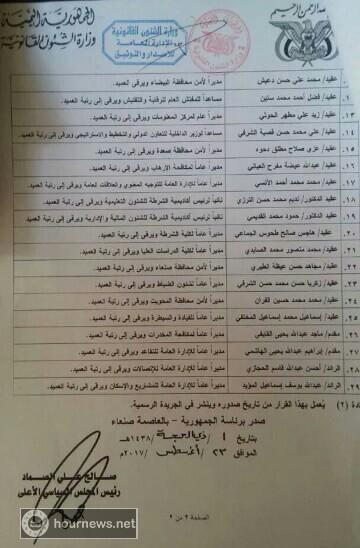 بسم الله الرحمن الرحيم
الجمهورية اليمنية
وزارة الشئون القانونية
وزارة الشئون القانونية
الإدارة العامة
للإصدار والتوثيق
عقيد/ محمد علي حسن دعيش مديراً لأمن محافظة البيضاء ويرقى إلى رتبة العميد.
عقيد/ فضل أحمد محمد مساعداً للمفتش العام للرقابة والتفتيش ويرقى إلى رتبة العميد.
١٣. عقيد/ زيد علي مطهر الحوثي مديراً عام لمركز المعلومات ويرقى إلى رتبة العميد.
١٤. عقيد/ علي محمد حسن الشرفي مساعداً لوزير الداخلية للتعاون الدولي والتخطيط والاستراتيجي ويرقى إلى رتبة العميد.
١٥. عقيد/ عزي صلاح مطلق دحوه مديراً لأمن محافظة صعدة ويرقى إلى رتبة العميد.
١٦. عقيد/ عبدالله مفرح مديراً عاماً لمكافحة الإرهاب ويرقى إلى رتبة العميد.
١٧. عقيد/ محمد محمد أحمد الآنسي مديراً عاماً للإدارة العامة للتوجيه المعنوي والعلاقات العامة ويرقى إلى رتبة العميد.
١٨. عقيد الدكتور/ نديم محمد حسن الترزي نائباً لرئيس أكاديمية الشرطة للشئون التعليمية ويرقى إلى رتبة العميد.
١٩. عقيد الدكتور/ حمود محمد القديمي نائباً لرئيس أكاديمية الشرطة للشئون المالية والإدارية ويرقى إلى رتبة العميد.
٢٠. عقيد/ هاجس صالح الجماعي مديراً عاماً لكلية الشرطة ويرقى إلى رتبة العميد.
٢١. عقيد/ محمد منصور محمد مديراً عاماً لكلية الدراسات العليا ويرقى إلى رتبة العميد.
٢٢. عقيد/ مجاهد حسن مديراً لأمن محافظة صنعاء ويرقى إلى رتبة العميد.
٢٣. عقيد/ زكريا حسن محمد حسن الشرفي مديراً عاماً لشئون الضباط ويرقى إلى رتبة العميد.
٢٤. عقيد/ محمد محمد حسين القران مديراً لأمن محافظة المحويت ويرقى إلى رتبة العميد.
٢٥. عقيد/ إسماعيل محمد إسماعيل مديراً عاماً للقيادة والسيطرة ويرقى إلى رتبة العميد.
٢٦. مقدم/ ماجد عبدالله يحيى القايفي مديراً عاماً لمكافحة المخدرات ويرقى إلى رتبة العميد.
٢٧. مقدم/ إبراهيم عبدالله يحيى الهاشمي مديراً عاماً للإدارة العامة للتقاعد ويرقى إلى رتبة العميد.
٢٨. الرائد/ أحسن عبدالله قاسم الحجازي مديراً عاماً للإدارة العامة للإتصالات ويرقى إلى رتبة العميد.
٢٩. الرائد/ عبدالله يوسف إسماعيل المؤيد مديراً عاماً للإدارة العامة للمشاريع والإسكان ويرقى إلى رتبة العميد.
دة (٢) يُعمل بهذا القرار من تاريخ صدوره وينشر في الجريدة الرسمية.
صدر برئاسة الجمهورية - بالعاصمة صنعاء
بتاريخ ١/ ذي الحجة /١٤٣٨هـ
الموافق ٢٣/ أغسطس /٢٠١٧م
صالح علي الصماد
رئيس المجلس السياسي الأعلى
الصفحة ٢ من ٢
hournews.net